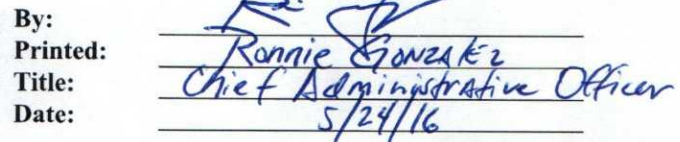 By:
Printed: Ronnie Gonzalez
Title: Chief Administrative Officer
Date: 5/24/16